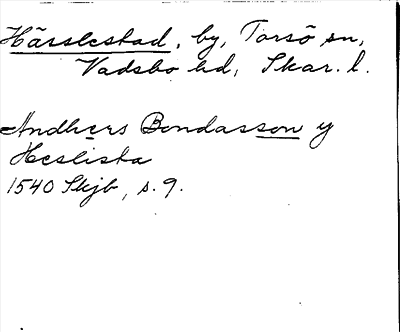 Härslestad, by, Torsö sn,
Vadsbo hd, Skar. l.
Andhers Bondasson y
Heslista
1540 Skjb, s. 9.